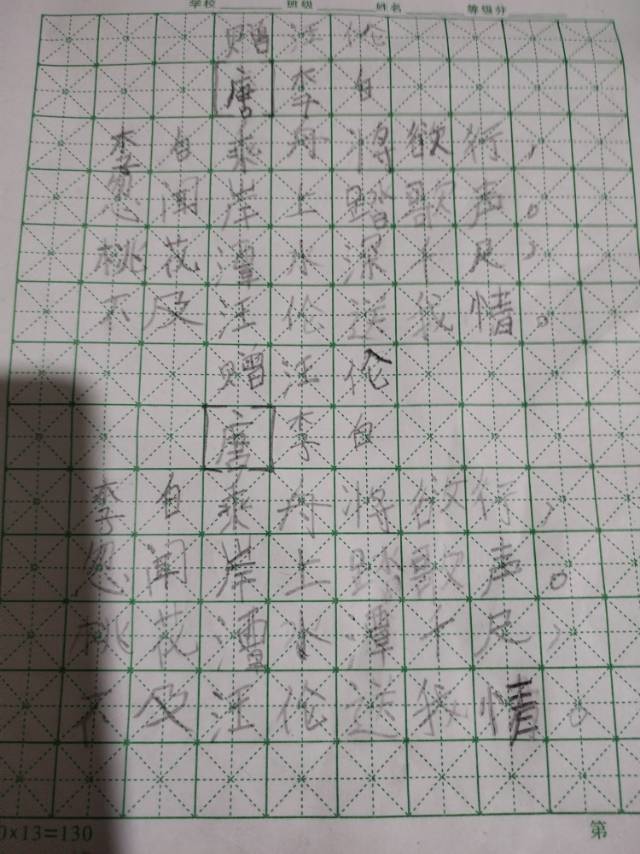 学校 班级 姓名 等级分
赠汪伦
唐 李白
李白乘舟将欲行，
忽闻岸上踏歌声。
桃花潭水深十足，
不及汪伦送我情。
赠汪伦
唐 李白
李白乘舟将欲行，
忽闻岸上踏歌声。
桃花漕水潭十足，
不及汪伦送我情。
0×13=130 第